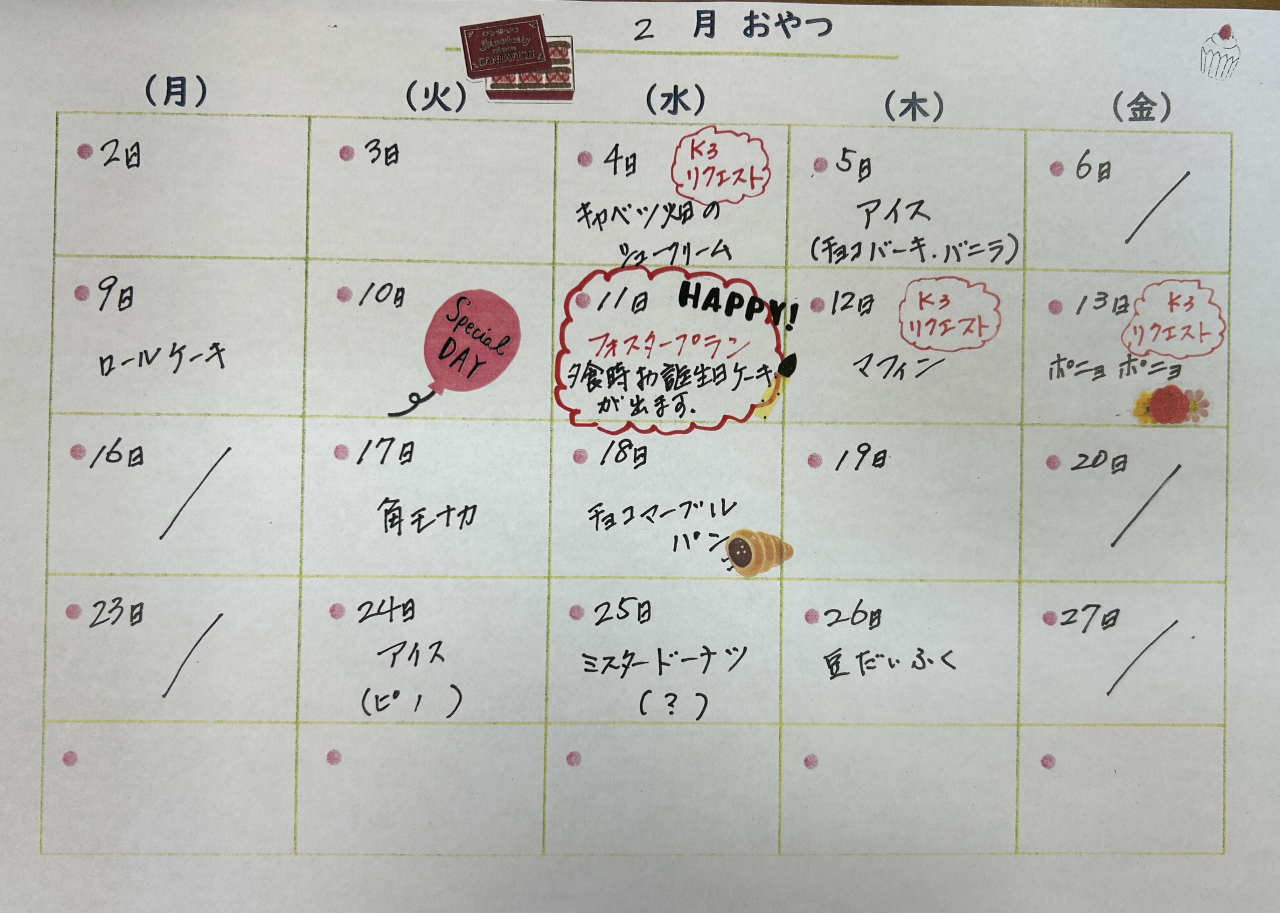 2 月 おやつ
SANDWICH
（月） （火） （水） （木） （金）
2日
3日
4日 K3
リクエスト
キャベツ畑の
シュークリーム
5日
アイス
(チョコバーキ・バニラ)
6日
9日
ロールケーキ
10日
Special
DAY
11日 HAPPY!
フォスタープラン
夕食時お誕生日ケーキ
が出ます.
12日 K3
リクエスト
マフィン
13日 K3
リクエスト
ポニョ ポニョ
16日
17日
角モナカ
18日
チョコマーブル
パン
19日
20日
23日
24日
アイス
(ピノ)
25日
ミスタードーナツ
(?)
26日
豆だいふく
27日